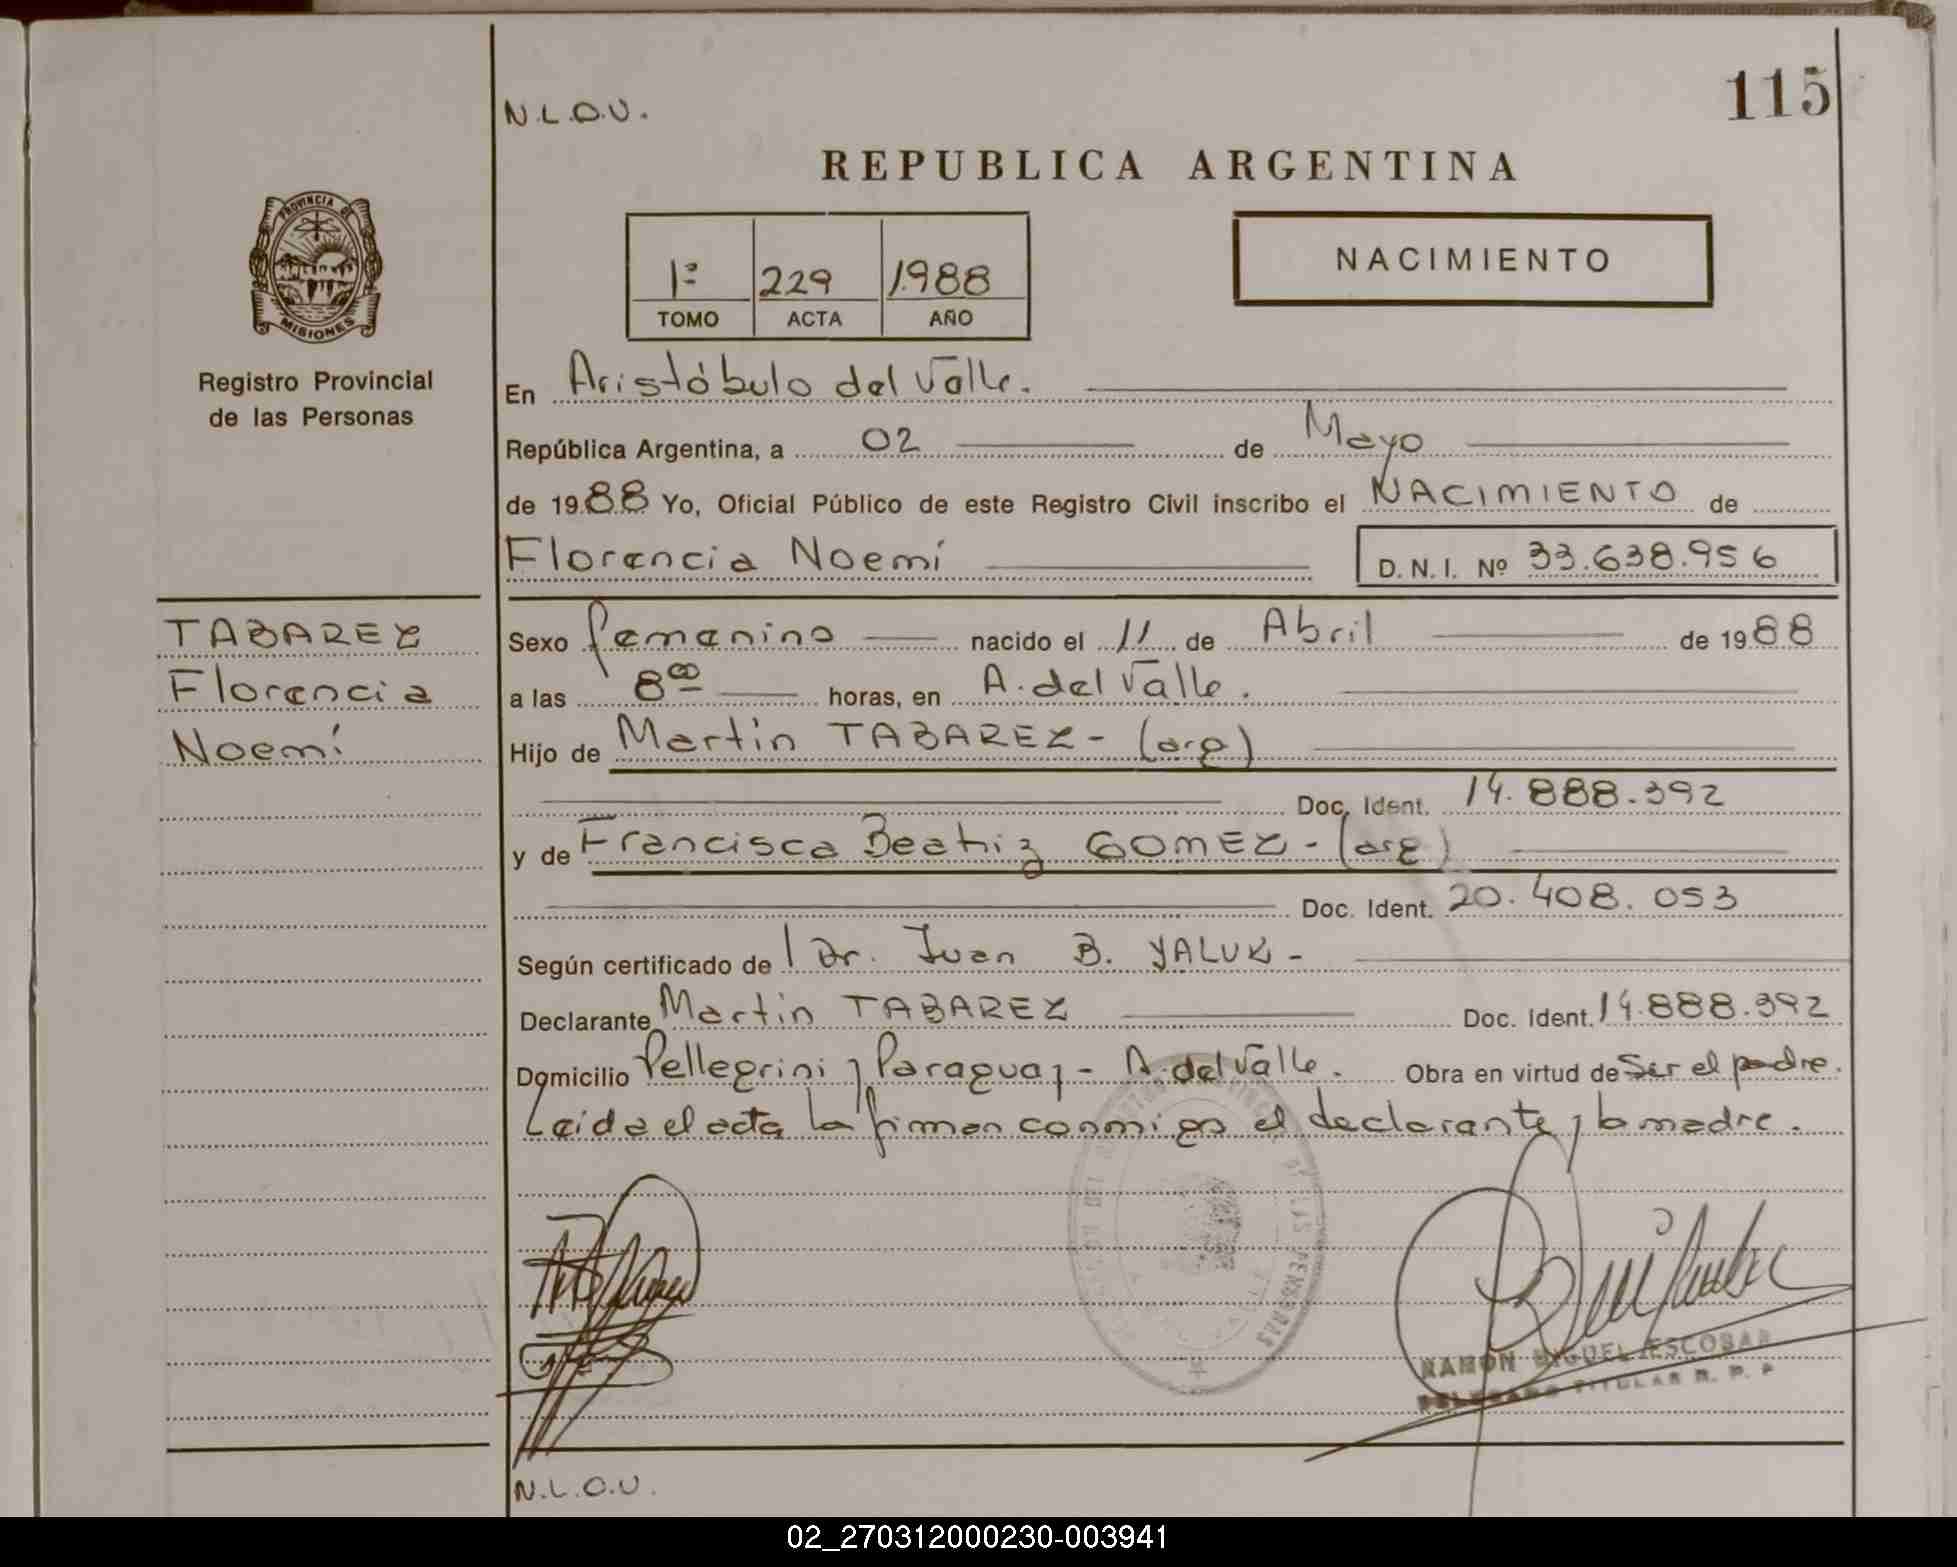 N.L.O.U.
115
REPUBLICA ARGENTINA
PROVINCIA DE
MISIONES
Registro Provincial
de las Personas
1º 229 1988
TOMO ACTA AÑO
NACIMIENTO
En Aristóbulo del Valle.
República Argentina, a 02 de Mayo
de 1988 Yo, Oficial Público de este Registro Civil inscribo el NACIMIENTO de
Florencia Noemí D.N.I. Nº 33.638.956
TABAREZ
Florencia
Noemí
Sexo femenino nacido el 11 de Abril de 1988
a las 8⁰⁰ horas, en A. del Valle.
Hijo de Martín TABAREZ - (arg)
Doc. Ident. 14.888.392
y de Francisca Beatriz GOMEZ - (arg)
Doc. Ident. 20.408.053
Según certificado de Dr. Juan B. YALUK -
Declarante Martín TABAREZ Doc. Ident. 14.888.392
Domicilio Pellegrini y Paraguay - A. del Valle. Obra en virtud de Ser el padre.
Leida el acta la firman conmigo el declarante y la madre.
RAMON MIGUEL ESCOBAR
DELEGADO TITULAR R. P. P
N.L.O.U.
02_270312000230-003941